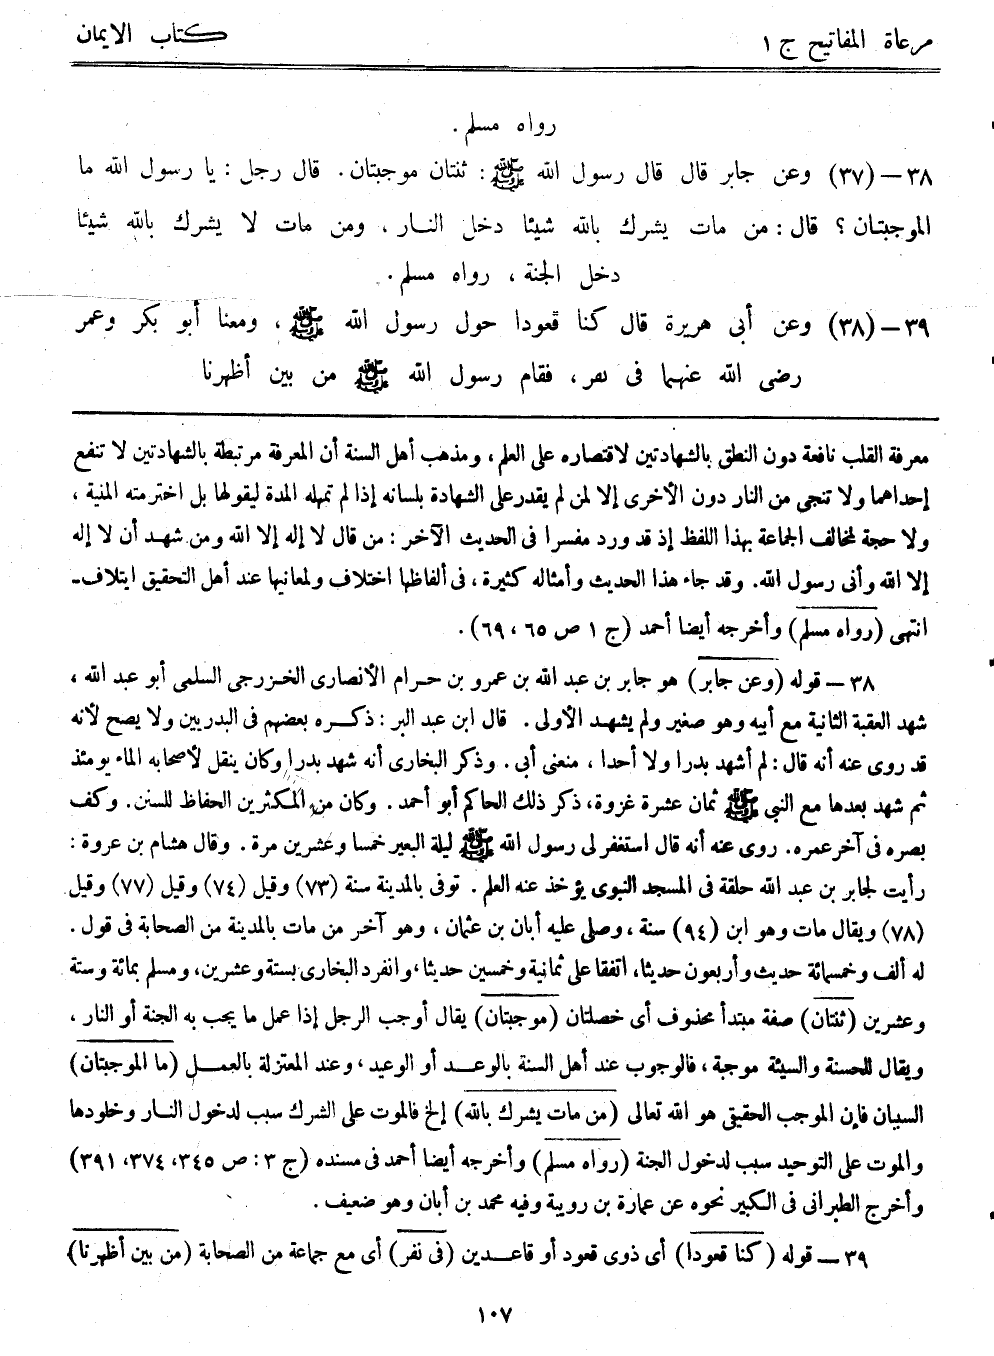 مرعاة المفاتيح ج ١
كتاب الايمان
رواه مسلم .
٣٨ – (٣٧) وعن جابر قال قال رسول الله ﷺ : ثنتان موجبتان . قال رجل : يا رسول الله ما
الموجبتان ؟ قال : من مات يشرك بالله شيئا دخل النار ، ومن مات لا يشرك بالله شيئا
دخل الجنة ، رواه مسلم .
٣٩ – (٣٨) وعن أبى هريرة قال كنا قعودا حول رسول الله ﷺ ، ومعنا أبو بكر وعمر
رضى الله عنهما فى نفر ، فقام رسول الله ﷺ من بين أظهرنا
معرفة القلب نافعة دون النطق بالشهادتين لاقتصاره على العلم ، ومذهب أهل السنة أن المعرفة مرتبطة بالشهادتين لا تنفع
إحداهما ولا تنجى من النار دون الأخرى إلا لمن لم يقدر على الشهادة بلسانه إذا لم تمهله المدة ليقولها بل اخترمته المنية ،
ولا حجة لمخالف الجماعة بهذا اللفظ إذ قد ورد مفسرا فى الحديث الآخر : من قال لا إله إلا الله ومن شهد أن لا إله
إلا الله وأنى رسول الله . وقد جاء هذا الحديث وأمثاله كثيرة ، فى ألفاظها اختلاف ولمعانيها عند أهل التحقيق ايتلاف-
انتهى (رواه مسلم) وأخرجه أيضا أحمد (ج ١ ص ٦٥ ، ٦٩) .
٣٨ – قوله (وعن جابر) هو جابر بن عبد الله بن عمرو بن حرام الأنصارى الخزرجى السلمى أبو عبد الله ،
شهد العقبة الثانية مع أبيه وهو صغير ولم يشهد الأولى . قال ابن عبد البر : ذكره بعضهم فى البدريين ولا يصح لأنه
قد روى عنه أنه قال : لم أشهد بدرا ولا أحدا ، منعنى أبى . وذكر البخارى أنه شهد بدرا وكان ينقل لأصحابه الماء يومئذ
ثم شهد بعدها مع النبي ﷺ ثمان عشرة غزوة ، ذكر ذلك الحاكم أبو أحمد . وكان من المكثرين الحفاظ للسنن . وكف
بصره فى آخر عمره . روى عنه أنه قال استغفر لى رسول الله ﷺ ليلة البعير خمسا وعشرين مرة . وقال هشام بن عروة :
رأيت لجابر بن عبد الله حلقة فى المسجد النبوى يؤخذ عنه العلم . توفى بالمدينة سنة (٧٣) وقيل (٧٤) وقيل (٧٧) وقيل
(٧٨) ويقال مات وهو ابن (٩٤) سنة ، وصلى عليه أبان بن عثمان ، وهو آخر من مات بالمدينة من الصحابة فى قول .
له ألف وخمسمائة حديث وأربعون حديثا، اتفقا على ثمانية وخمسين حديثا ، وانفرد البخارى بستة وعشرين، ومسلم بمائة وستة
وعشرين (ثنتان) صفة مبتدأ محذوف أى خصلتان (موجبتان) يقال أوجب الرجل إذا عمل ما يجب به الجنة أو النار ،
ويقال للحسنة والسيئة موجبة ، فالوجوب عند أهل السنة بالوعد أو الوعيد ، وعند المعتزلة بالعمل (ما الموجبتان)
السببان فإن الموجب الحقيقى هو الله تعالى (من مات يشرك بالله) إلخ فالموت على الشرك سبب لدخول النار وخلودها
والموت على التوحيد سبب لدخول الجنة (رواه مسلم) وأخرجه أيضا أحمد فى مسنده (ج ٣ : ص ٣٤٥، ٣٧٤، ٣٩١)
وأخرج الطبرانى فى الكبير نحوه عن عمارة بن رويبة وفيه محمد بن أبان وهو ضعيف .
٣٩ – قوله (كنا قعودا) أى ذوى قعود أو قاعدين (فى نفر) أى مع جماعة من الصحابة (من بين أظهرنا)
١٠٧